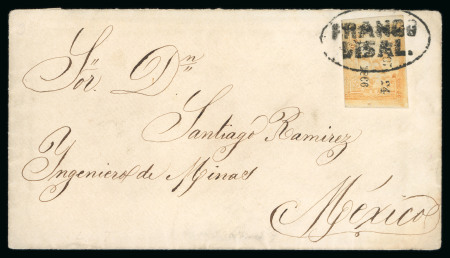 FRANCO
BISAL.
24
1866
Sor. Dn
Santiago Ramirez
Yngeniero de Minas
México